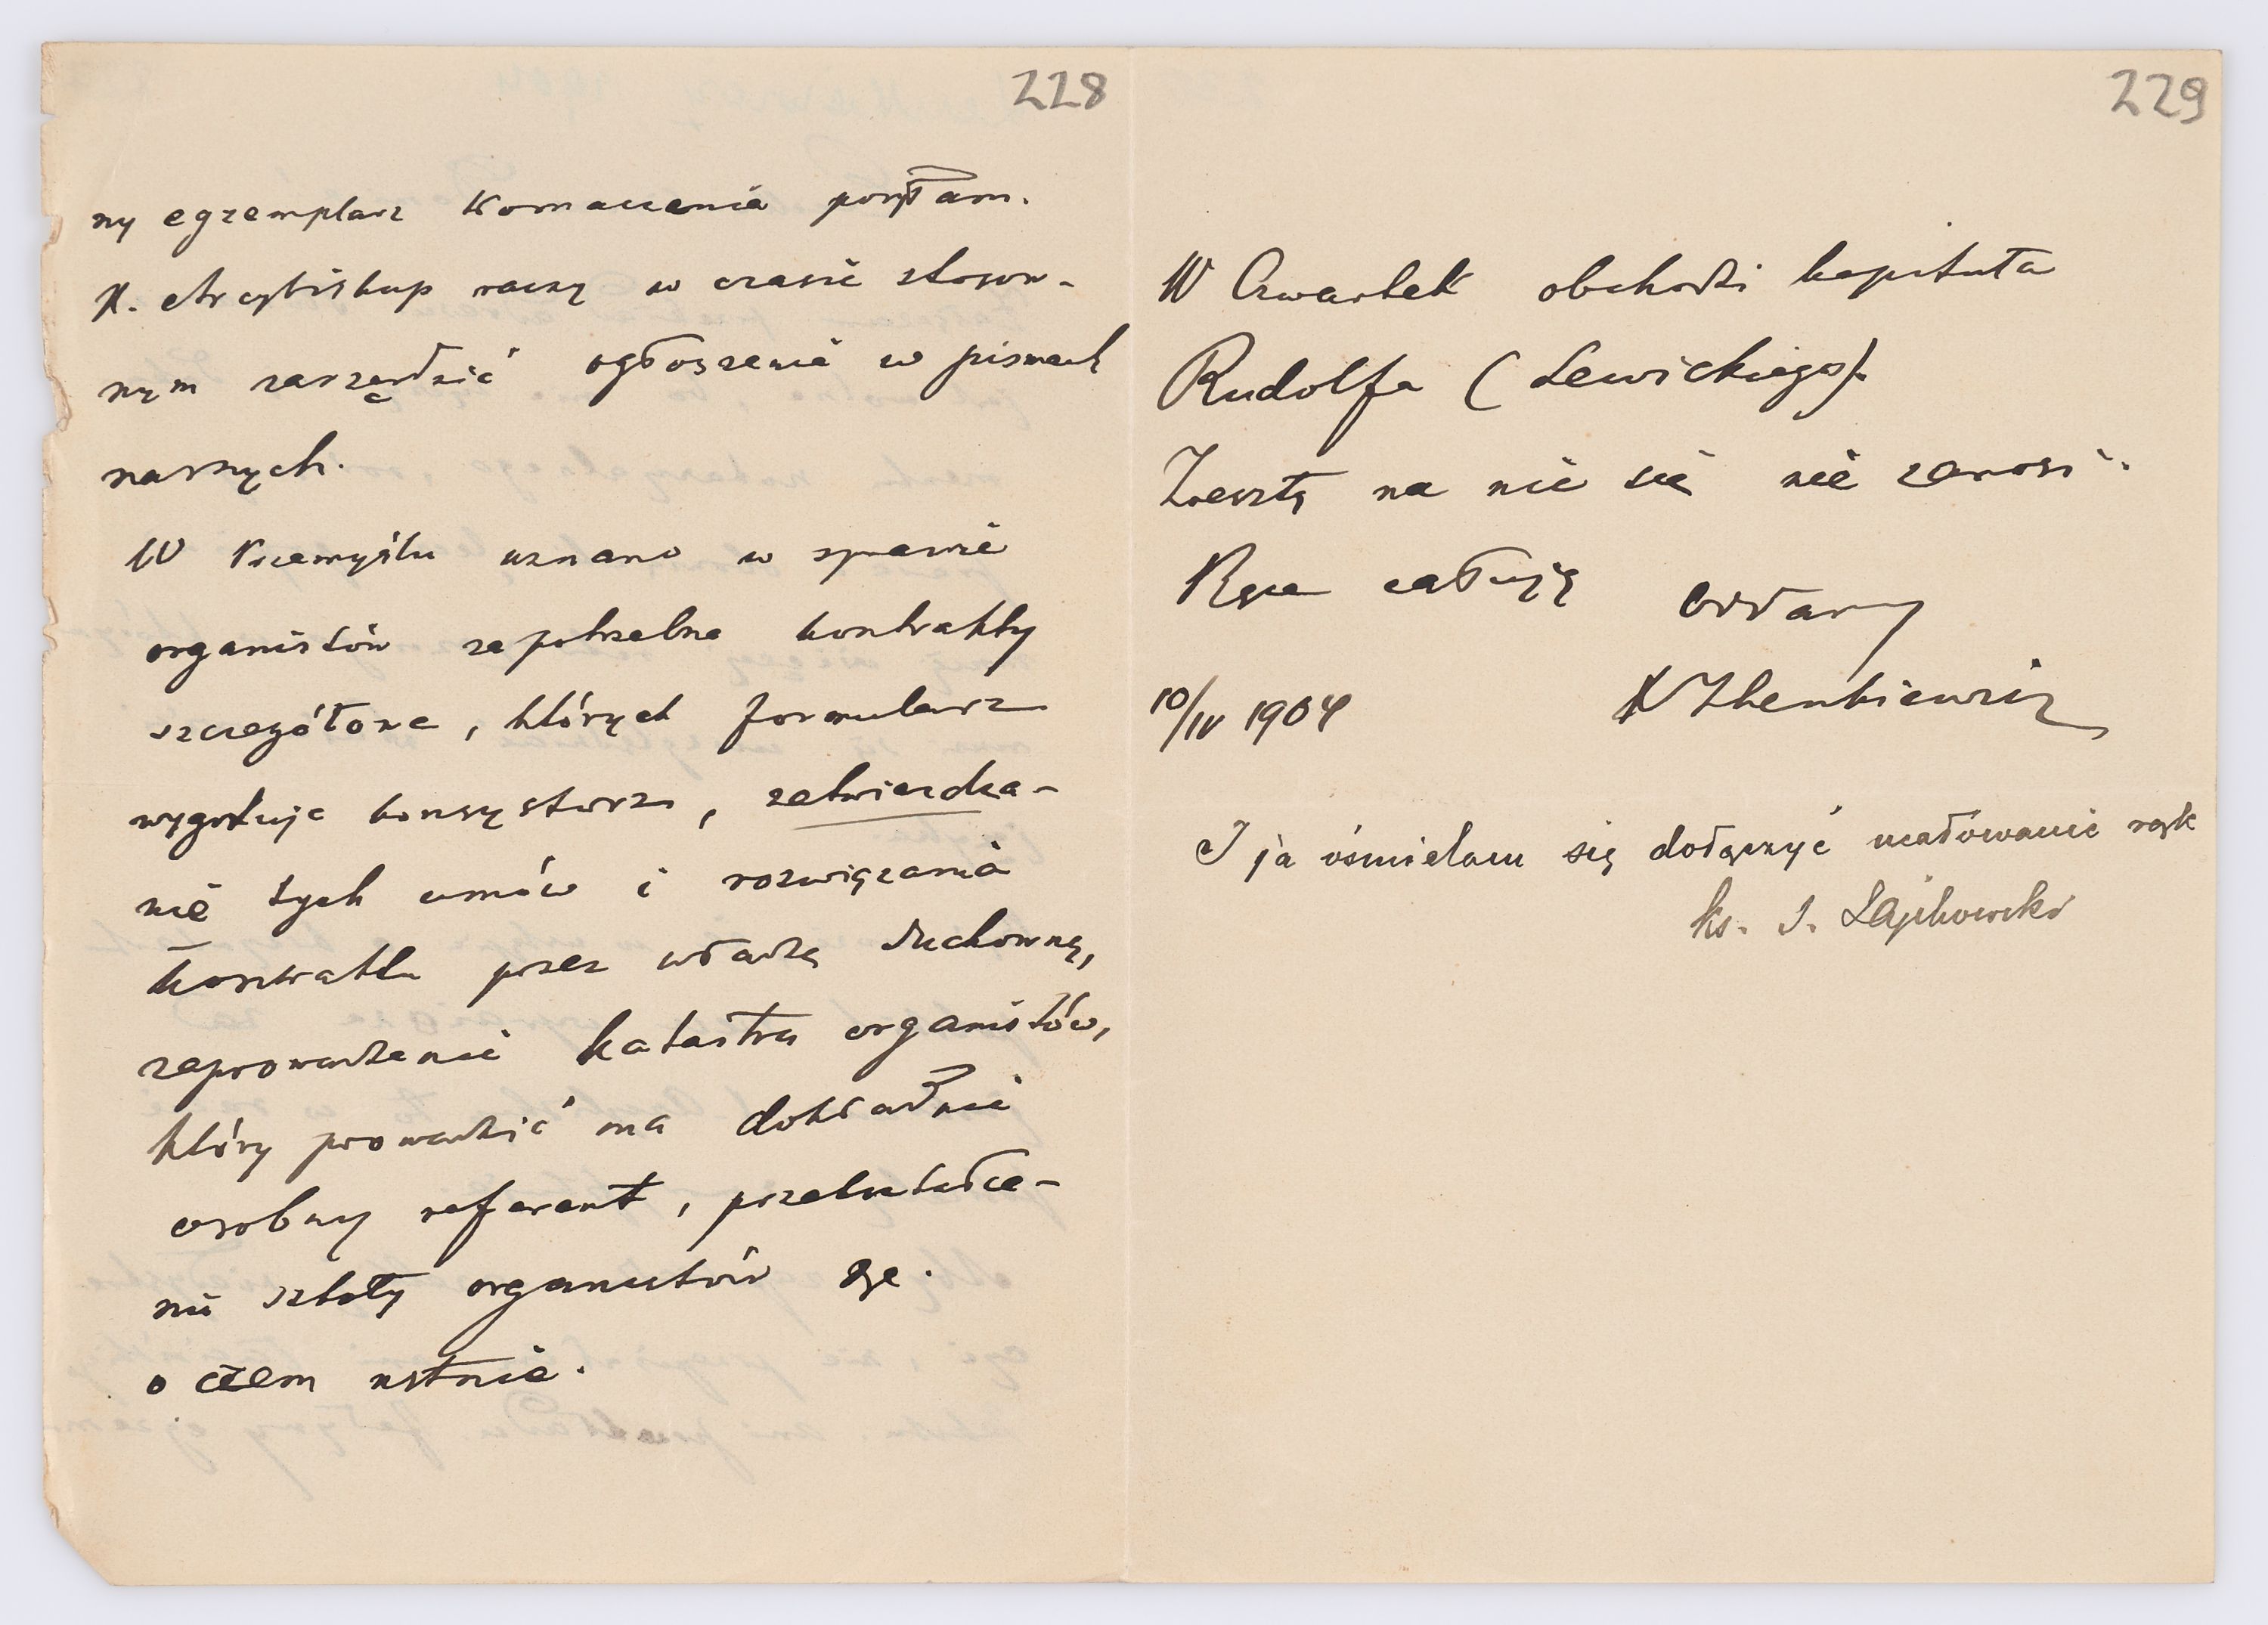 228
ny egzemplarz tłomaczenia posyłam.
X. Arcybiskup raczy w czasie stosow-
nym zarządzić ogłoszenie w pismach
naszych.
W Przemyślu uznano w sprawie
organistów za potrzebne kontrakty
szczegółowe, których formularz
wygotuje konsystorz, zatwierdza-
nie tych umów i rozwiązania
kontraktu przez władzę duchowną,
zaprowadzenie katastru organistów,
który prowadzić ma dokładnie
osobny referent, przekształce-
nie szkoły organistów
o czem ustnie.
229
W Czwartek obchodzi kapituła
Rudolfa (Lewickiego).
Zresztą na nic się nie zanosi.
Ręce całuję oddany
10/IV 1904
I ja ośmielam się dołączyć ucałowanie rąk
ks. J.